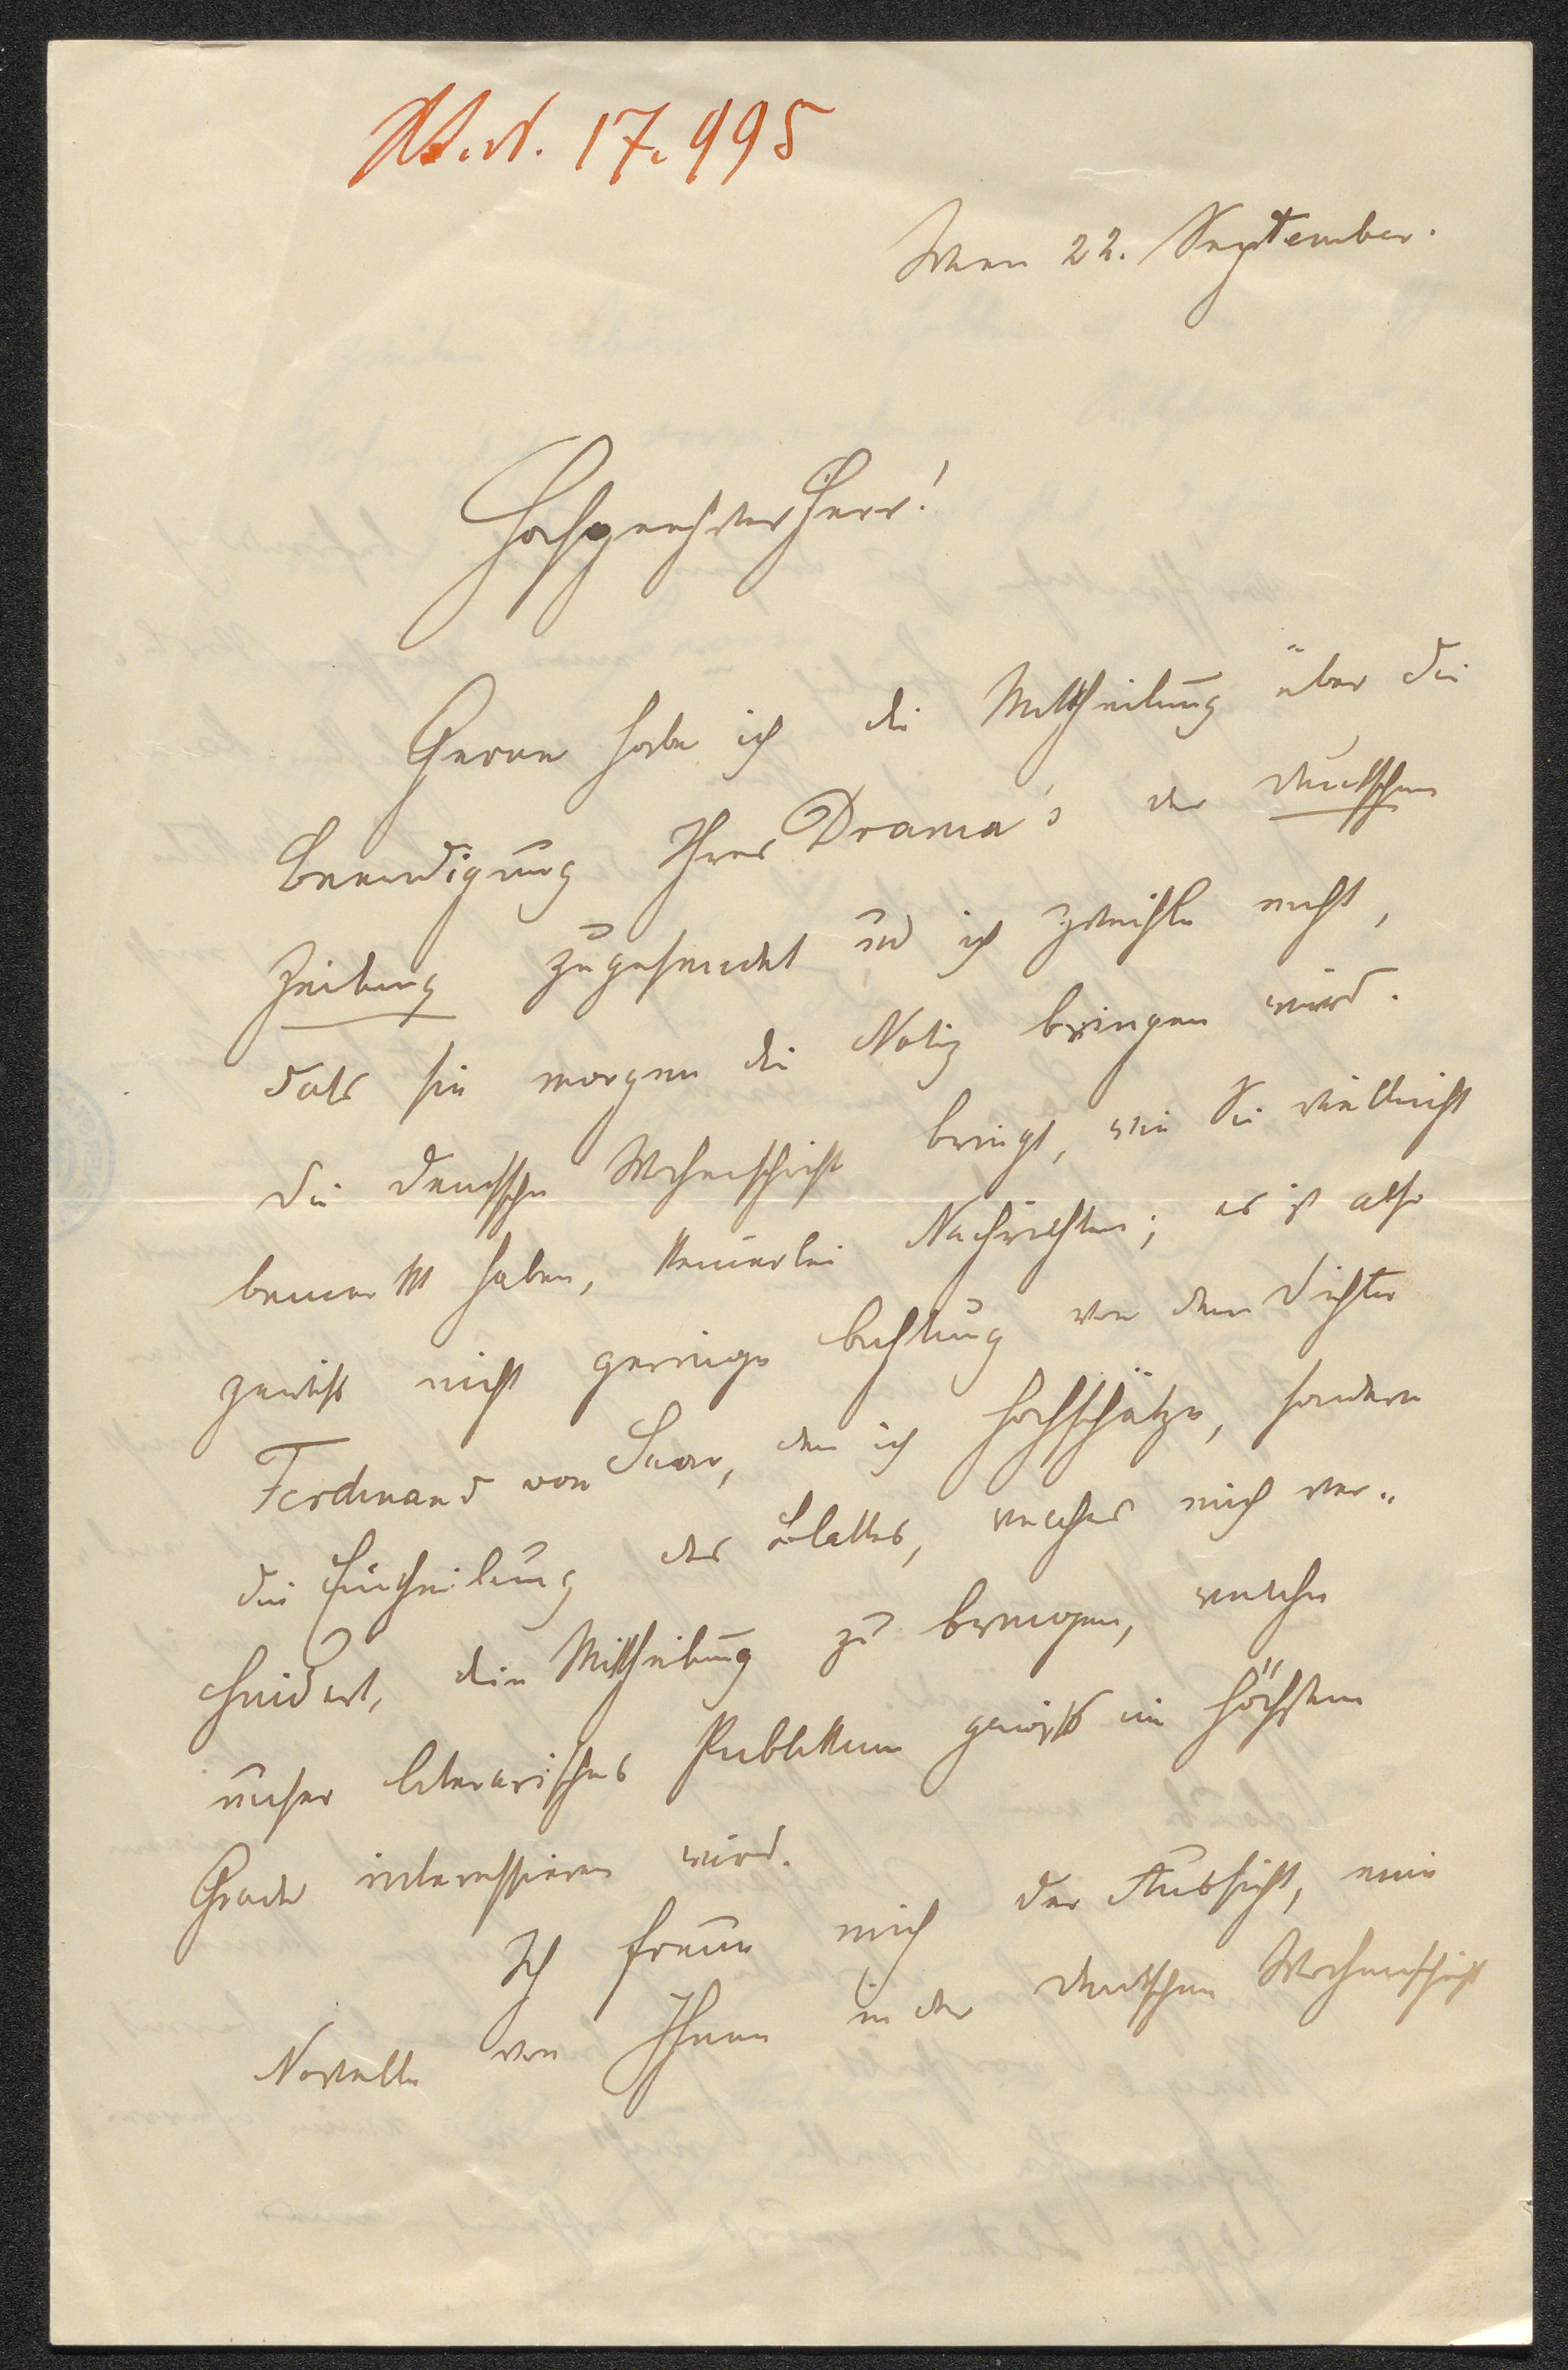 17.995
Wien 22. September.
Hochgeehrter Herr!
Gerne habe ich die Mittheilung über die
Beendigung Ihres Drama's der deutschen
Zeitung zugesendet und ich zweifle nicht,
daß sie morgen die Notiz bringen wird.
Die deutsche Wochenschrift bringt, wie Sie vielleicht
bemerkt haben, keinerlei Nachrichten; es ist also
gewiß nicht geringe Achtung vor dem Dichter
Ferdinand von Saar, den ich hochschätze, sondern
die Eintheilung des Blattes, welches mich ver-
hindert, die Mittheilung zu bringen, welche
unser literarisches Publikum gewiß im höchsten
Grade interessieren wird.
Ich freue mich der Aussicht, eine
Novelle von Ihnen in der deutschen Wochenschrift